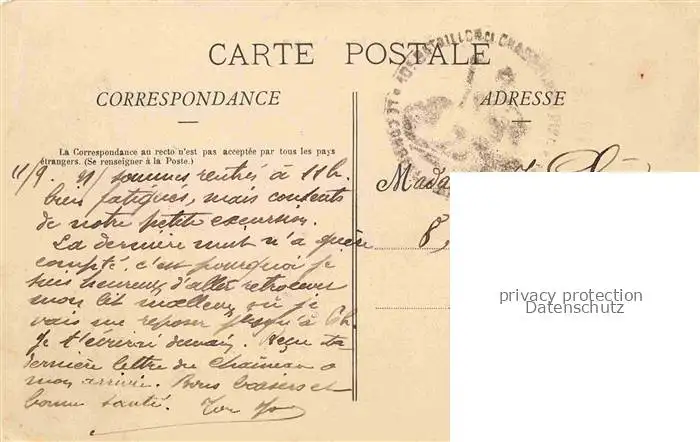 CARTE POSTALE
CORRESPONDANCE
ADRESSE
La Correspondance au recto n'est pas acceptée par tous les pays
étrangers. (Se renseigner à la Poste.)
11/9. N/ sommes rentrés à 11 h.
bien fatigués, mais contents
de notre petite excursion.
La dernière nuit n'a guère
compté, c'est pourquoi je
suis heureux d'aller retrouver
mon lit moelleux où je
vais me reposer jusqu'à 6h.
Je t'écrirai demain. Reçu ta
dernière lettre du
mon arrivée. Bons baisers et
bonne santé. Ton
Mada
8,
privacy protection
Datenschutz